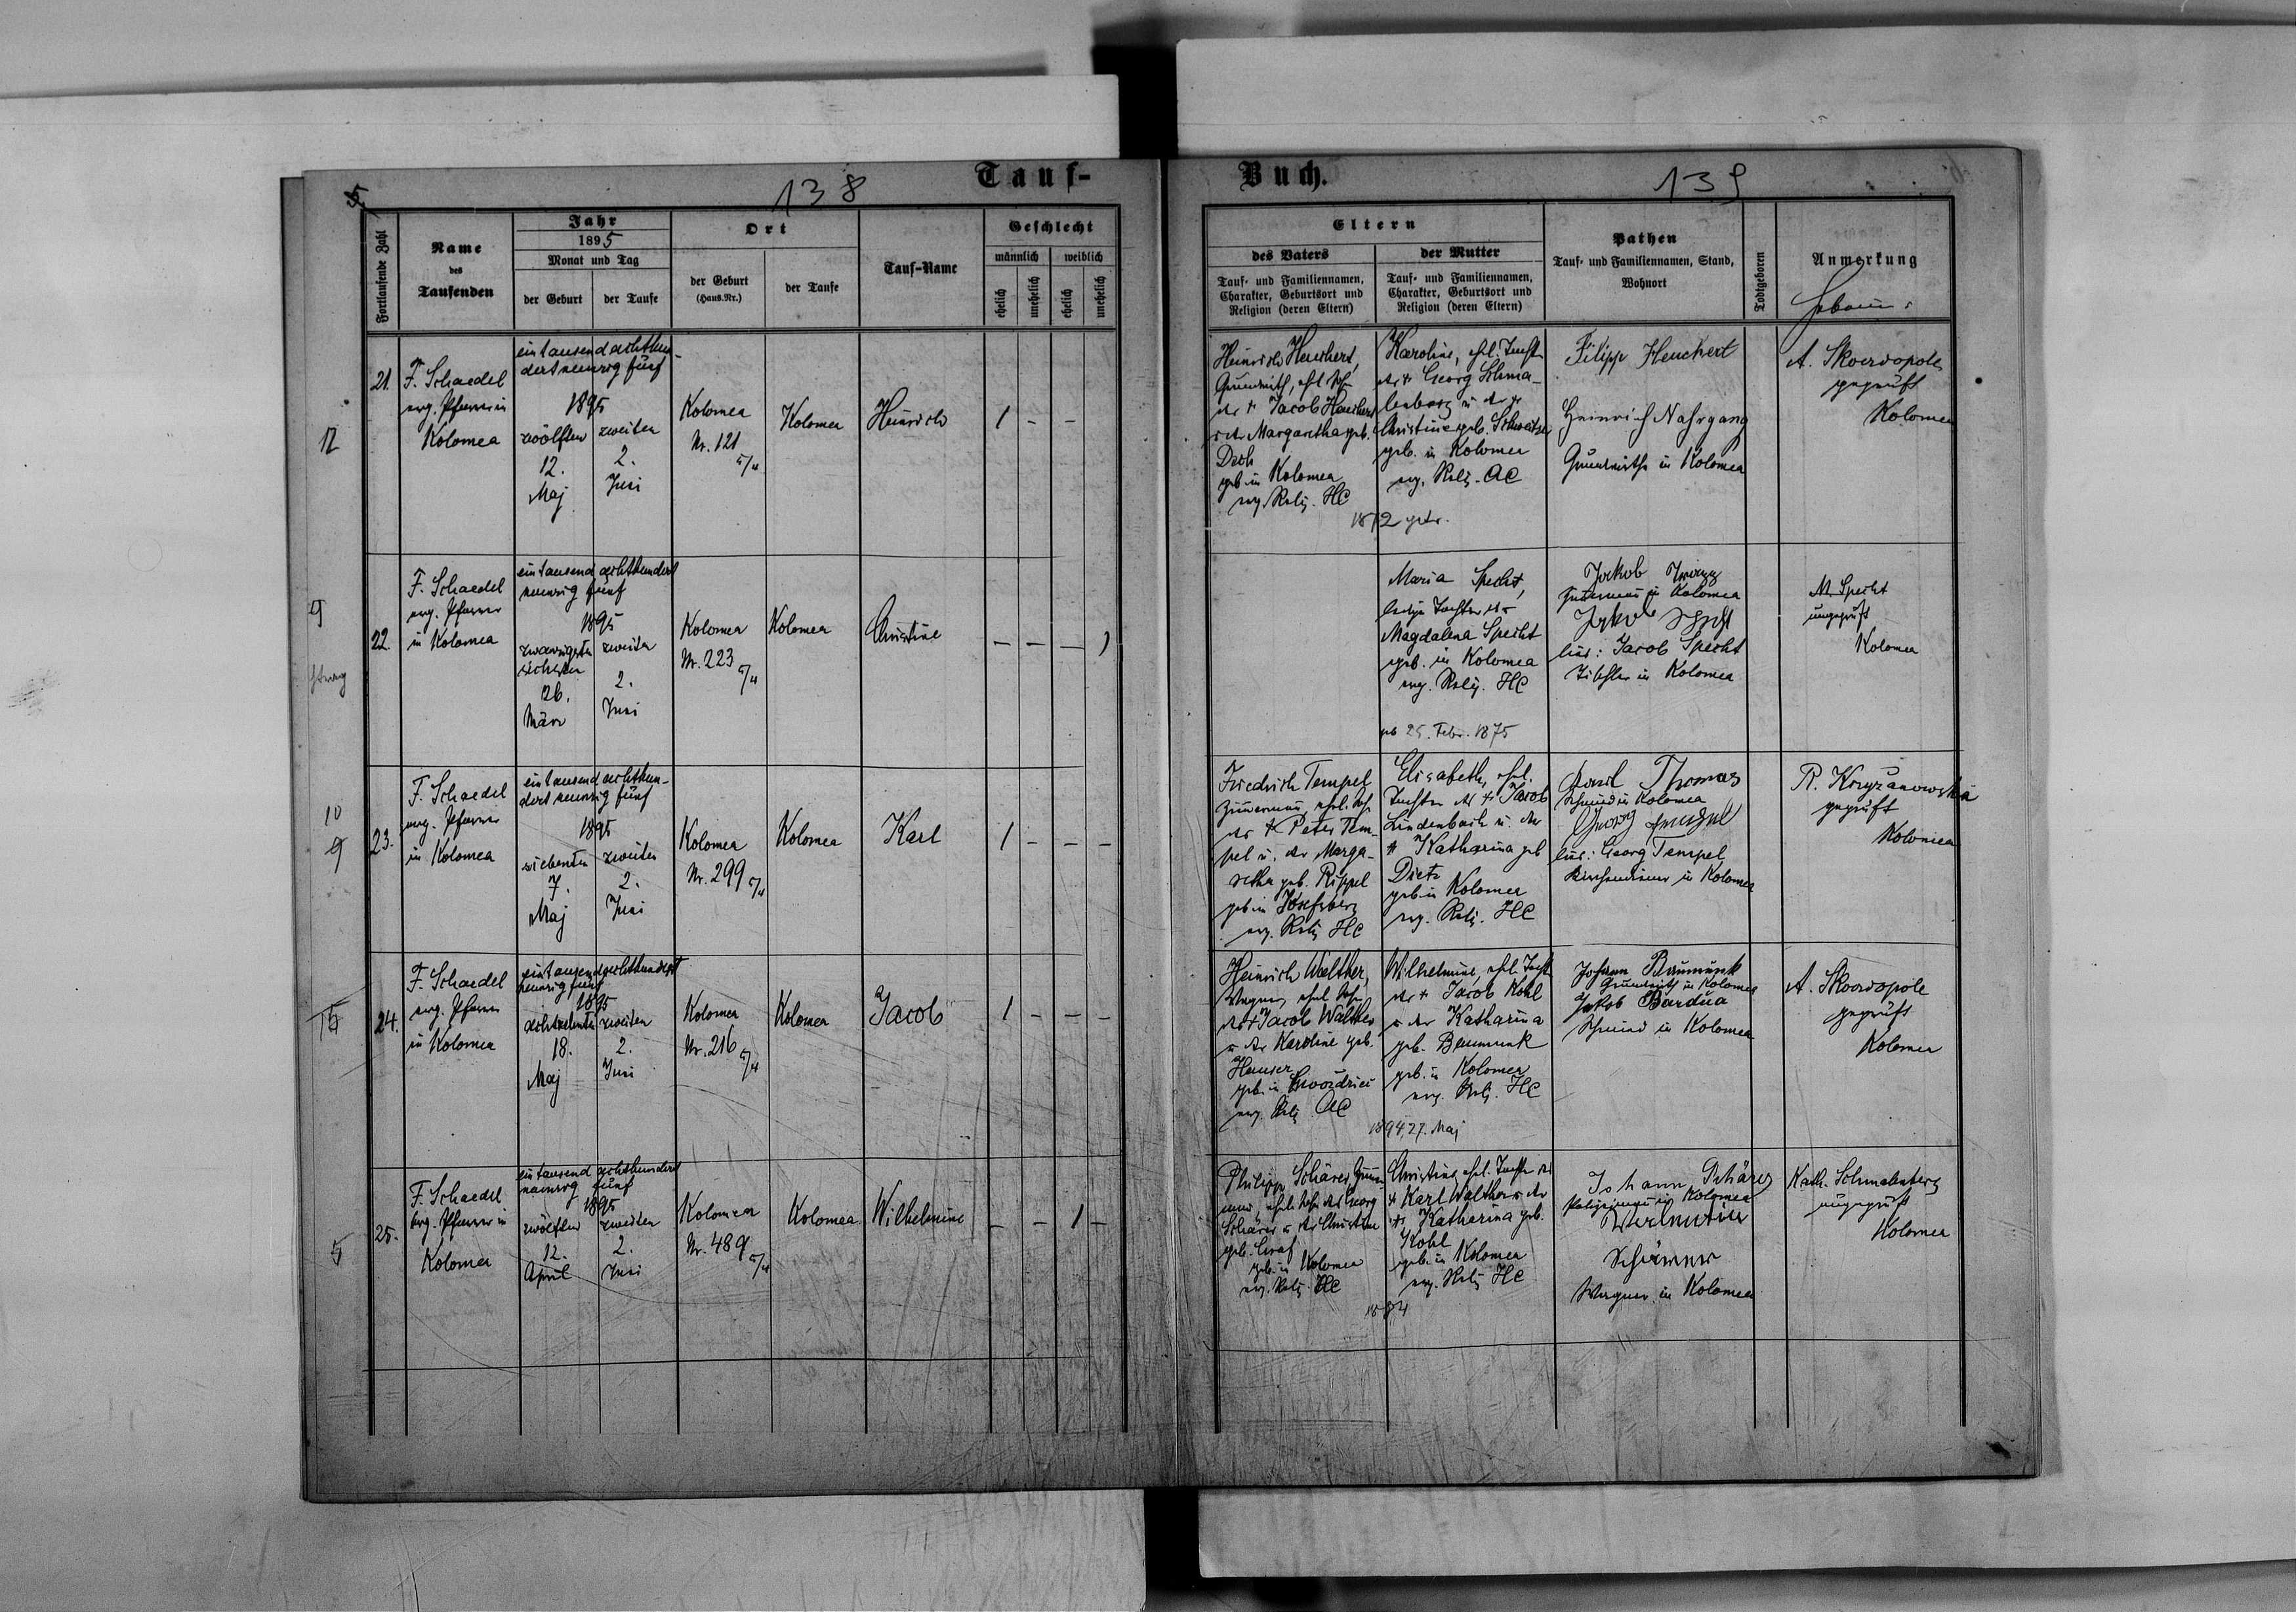 5.
138
Tauf-
Fortlaufende Zahl
Name
des
Taufenden
Jahr
1895
Monat und Tag
der Geburt
der Taufe
Ort
der Geburt
(Haus-Nr.)
der Taufe
Tauf-Name
Geschlecht
männlich
weiblich
ehelich
unehelich
ehelich
unehelich
12
21.
F. Schaedel
evg. Pfarrer in
Kolomea
ein tausend achthun-
dert neunzig fünf
1895
zwölften
12.
Maj
zweiten
2.
Juni
Kolomea
Nr. 121
Kolomea
Heinrich
1 - -
9
22.
F. Schaedel
evg. Pfarrer
in Kolomea
ein tausend achthundert
neunzig fünf
1895
zwanzigsten
sechsten
26.
März
zweiten
2.
Juni
Kolomea
Nr. 223
Kolomea
Christine
- - - 1
10
9
23.
F. Schaedel
evg. Pfarrer
in Kolomea
ein tausend achthun-
dert neunzig fünf
1895
siebenten
7.
Maj
zweiten
2.
Juni
Kolomea
Nr. 299
Kolomea
Karl
1 - - -
24.
F. Schaedel
evg. Pfarrer
in Kolomea
ein tausend achthundert
neunzig fünf
1895
achtzehnten
18.
Maj
zweiten
2.
Juni
Kolomea
Nr. 216
Kolomea
Jacob
1 - - -
5
25.
F. Schaedel
evg. Pfarrer in
Kolomea
ein tausend achthundert
neunzig fünf
1895
zwölften
12.
April
zweiten
2.
Juni
Kolomea
Nr. 489
Kolomea
Wilhelmine
- - 1 -
Buch.
139
Eltern
des Vaters
Tauf- und Familiennamen,
Charakter, Geburtsort und
Religion (deren Eltern)
der Mutter
Tauf- und Familiennamen,
Charakter, Geburtsort und
Religion (deren Eltern)
Pathen
Tauf- und Familiennamen, Stand,
Wohnort
Todtgeboren
Anmerkung
Heinrich Heuchert,
Grundwirth, ehl. Sohn
des + Jacob Heuchert
u. der Margaretha geb.
geb. in Kolomea
evg. Relig. HC
Karoline, ehl. Tochter
des + Georg Schma-
lenberg u. der
Christine geb. Schweitzer
geb. in Kolomea
evg. Relig. AC
Filipp Heuchert
Heinrich Nahrgang
Grundwirthe in Kolomea
A. Skoeropole
geprüft
Kolomea
Maria Specht,
ledige Tochter der
Magdalena Specht
geb. in Kolomea
evg. Relig. HC
geb 25. Febr. 1875
Jakob
Zimmermann in Kolomea
Jakob
hier: Jacob Specht
Tischler in Kolomea
M. Specht
ungeprüft
Kolomea
Friedrich Tempel
Zimmermann, ehl. Sohn
des + Peter Tem-
pel u. der Marga-
retha geb. Rippel
geb in Josefsberg
evg. Relig HC
Elisabeth, ehl.
Tochter des + Jacob
Lindenbach u. der
+ Katharina geb
Dietz
geb in Kolomea
evg. Relig. HC
Thomas
Schmied in Kolomea
Georg Tempel
hier: Georg Tempel
Kirchendiener in Kolomea
R. Krzyżanowska
geprüft
Kolomea
Heinrich Walther,
Wagner, ehel Sohn
des + Jacob Walther
u. der Karoline geb.
Hauser
evg. Relig AC
Wilhelmine, ehl. Tochter
des + Jacob Kohl
u. der Katharina
geb. Baumunk
geb. in Kolomea
evg. Relig. HC
1894, 27. Maj
Johann Baumunk
Grundwirth in Kolomea
Jakob Bardua
Schmied in Kolomea
A. Skoeropole
geprüft
Kolomea
Philipp Schärer
ehel. Sohn des Georg
Schärer u. der Christine
geb. Graf
geb. in Kolomea
evg. Relig. HC
Christine, ehl. Tochter des
+ Karl Walther u. der
+ Katharina geb.
Kohl
geb. in Kolomea
evg. Relig HC
Johann Schärer
in Kolomea
Wagner in Kolomea
Kath. Schmalenberg
ungeprüft
Kolomea